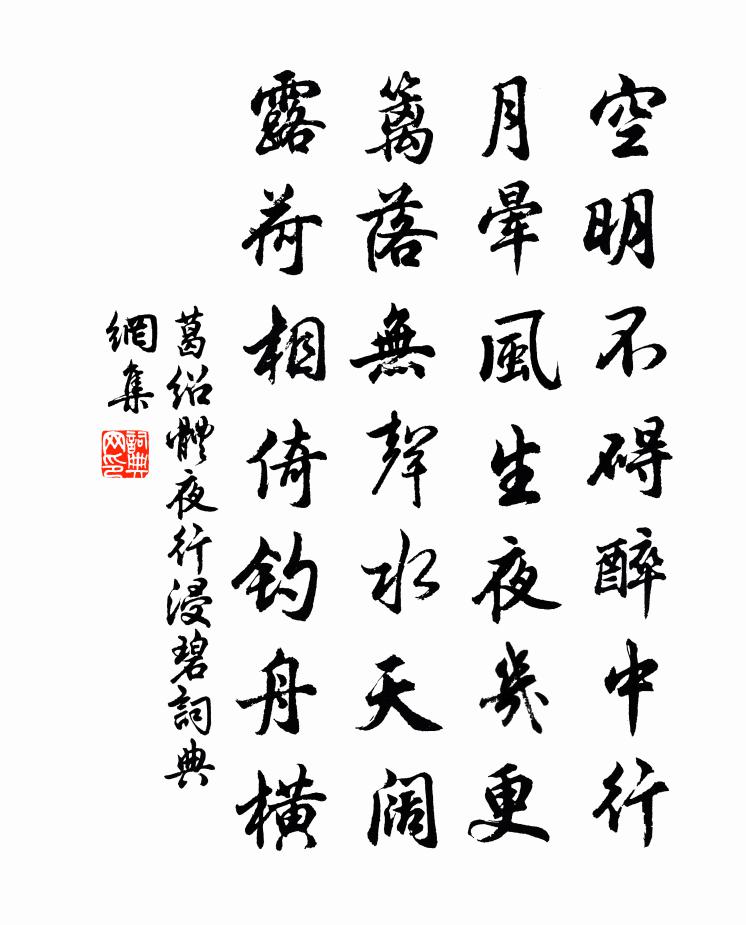 空明不碍醉中行
月暈風生夜幾更
篱落無聲水天阔
露荷相倚釣舟橫
葛绍體夜行浸碧詞典
網集
詞典
网印